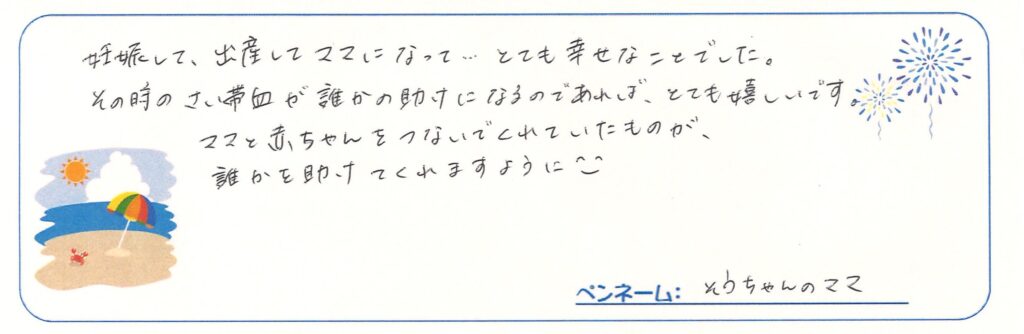 妊娠して、出産してママになって… とても幸せなことでした。
その時のさい帯血が誰かの助けになるのであれば、とても嬉しいです。
ママと赤ちゃんをつないでくれていたものが、
誰かを助けてくれますように^^
ペンネーム: そうちゃんのママ